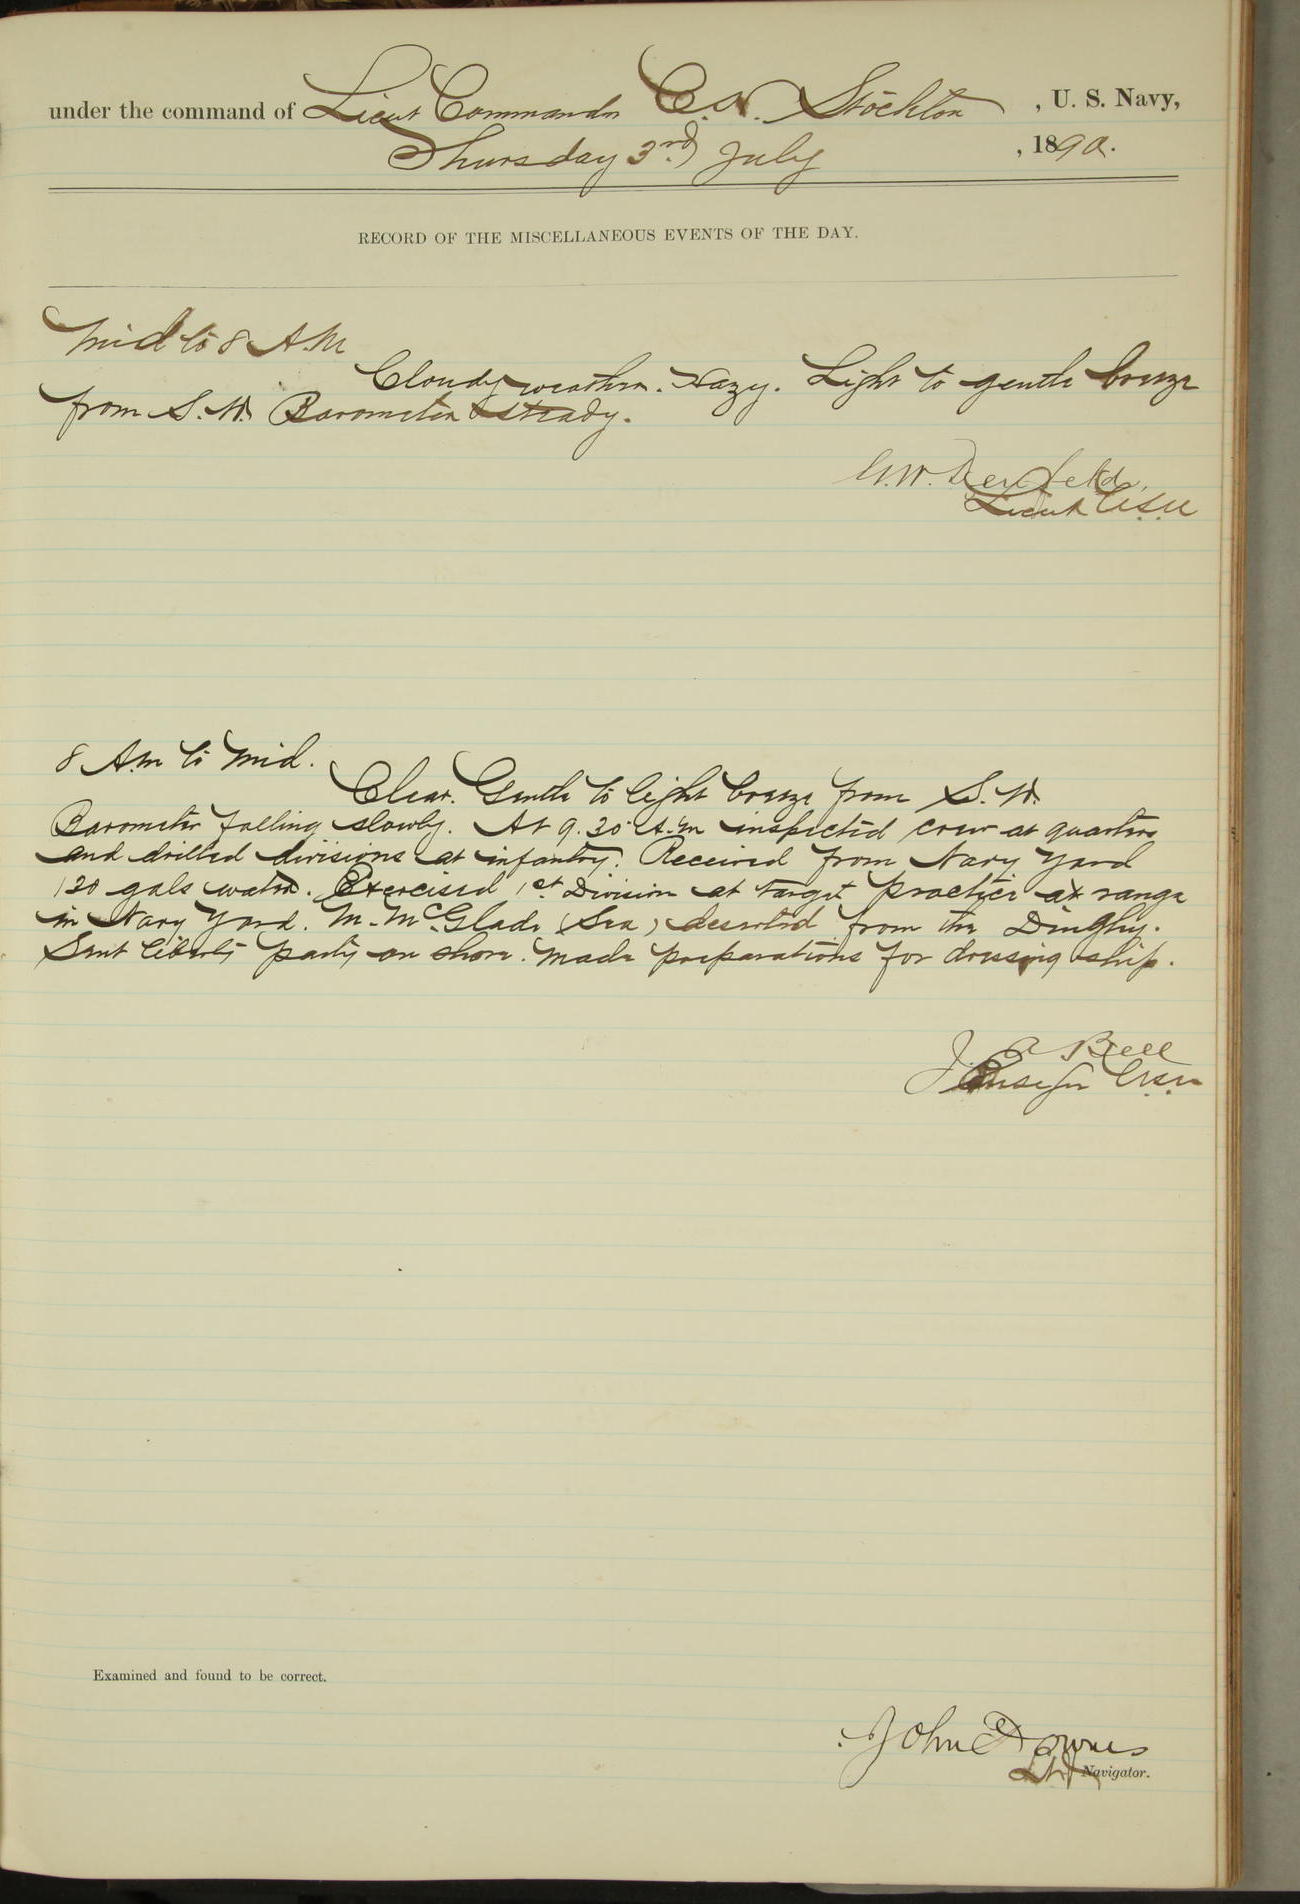 under the command of Lieut Commander C. H. Stockton, U. S. Navy,
Thursday 3rd July, 1890.
RECORD OF THE MISCELLANEOUS EVENTS OF THE DAY.
Mid to 8 A.M
Cloudy weather. Hazy. Light to gentle breeze
from S. W. Barometer steady.
G.W. Denfeld,
Lieut U.S.N
8 A.M to Mid.
Clear. Gentle to light breeze from S. W.
Barometer falling slowly. At 9.30 A.M inspected crew at quarters
and drilled divisions at infantry. Received from Navy Yard
120 gals water. Exercised 1st Division at target practice at range
in Navy Yard. M. McGlade (Sea) deserted from the Dinghy.
Sent liberty party on shore. Made preparations for dressing ship.
J. A Bell
Ensign U.S.N
Examined and found to be correct.
John Downes
Lt. Navigator.